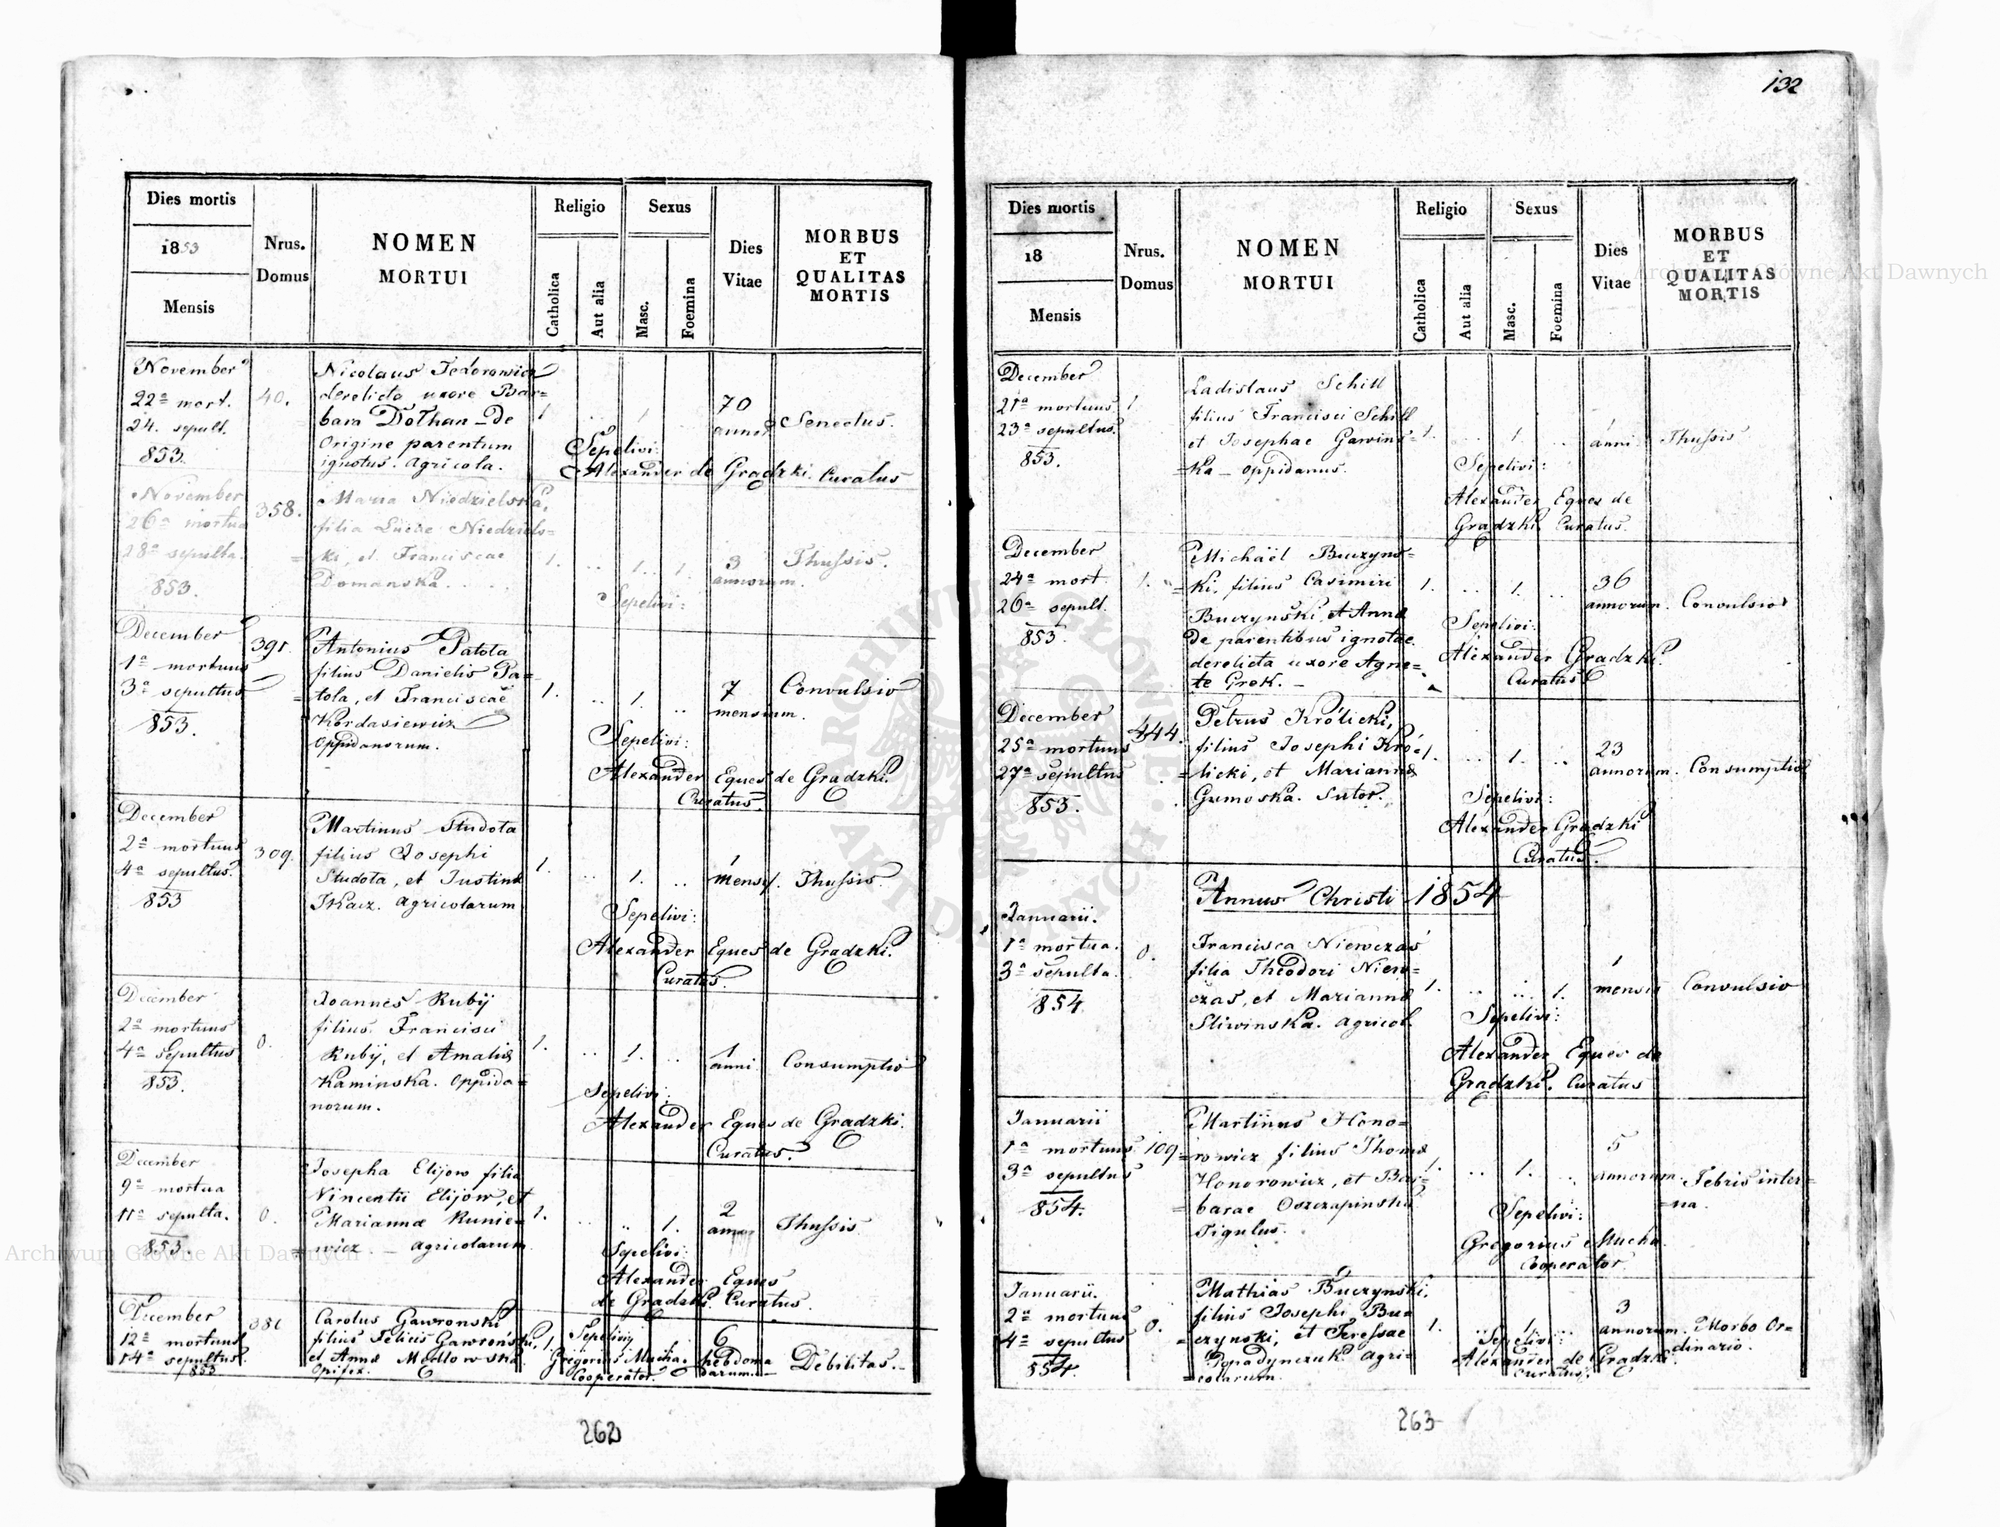 132
Dies mortis
1853
Mensis
Nrus.
Domus
NOMEN
MORTUI
Religio
Catholica
Aut alia
Sexus
Masc.
Foemina
Dies
Vitae
MORBUS
ET
QUALITAS
MORTIS
November
22ª mort.
24. sepult.
853.
40.
Nicolaus Fedorowicz
derelicta uxore Bar=
bara Dothan - De
Origine parentum
ignotus. Agricola.
1. .. 1.
70
annor
Senectus.
Sepelivi:
Alexander de Gradzki. Curatus
November
26ª mortua
28ª sepulta.
853.
358.
Maria Niedzielska,
filia Lucae Niedziels=
=ki, et Franciscae
Domanska.
1. .. 1. 1.
3
annorum.
Thussis.
Sepelivi:
December
1ª mortuus
3ª sepultus
853.
391.
Antonius Patota
filius Danielis Pa=
=tola, et Franciscae
Kordasiewicz
Oppidanorum.
1. .. 1. ..
7
mensium.
Convulsio
Sepelivi:
Alexander Eques de Gradzki.
Curatus.
December
2ª mortuus
4ª sepultus.
853
309.
Martinus Studota
filius Josephi
Studota, et Justina
Tkacz. Agricolarum
1. .. 1. ..
1
mensis.
Thussis.
Sepelivi:
Alexander Eques de Gradzki.
Curatus.
December
2ª mortuus
4ª Sepultus
853.
0.
Joannes Rubij
filius Francisci
Rubij, et Amalia
Kaminska. Oppida=
norum.
1. .. 1. ..
1
anni.
Consumptio
Sepelivi:
Alexander Eques de Gradzki.
Curatus.
December
9ª mortua
11ª sepulta.
853.
0.
Josepha Elijow filia
Vincentii Elijow, et
Marianna Runie=
wicz - Agricolarum
1. .. .. 1.
2
annor
Thussis
Sepelivi:
Alexander Eques
de Gradzki. Curatus.
December
12ª mortuus
14ª sepultus
853
Carolus Gawronski
filius Felicis Gawroński,
et Anna
Opifex.
1.
Sepelivij
Gregorius Mucha.
Cooperator.
6
hebdoma
darum.
Debilitas.
262
Dies mortis
18
Mensis
Nrus.
Domus
NOMEN
MORTUI
Religio
Catholica
Aut alia
Sexus
Masc.
Foemina
Dies
Vitae
MORBUS
ET
QUALITAS
MORTIS
December
21ª mortuus
23ª sepultus.
853.
1.
Ladislaus Schill
filius Francisci Schill
et Josephae Gawins=
=ka - Oppidanus.
1. .. 1. ..
1
anni
Thussis
Sepelivi:
Alexander Eques de
Gradzki Curatus.
December
24ª mort.
26ª sepult.
853.
1.
Michaël Buczyns=
=ki, filius Casimiri
Buczynski, et Anna
de parentibus ignotae
derelicta uxore Agne=
te Grek. -
1. .. 1. ..
36
annorum.
Convulsio
Sepelivi:
Alexander Gradzki.
Curatus
December
25ª mortuus
27ª sepultus
853.
444.
Petrus Królicki,
filius Josephi Kró=
=licki, et Marianna
Gumoska. Sutor.
1. .. 1. ..
23
annorum.
Consumptio
Sepelivi:
Alexander Gradzki
Curatus.
Annus Christi 1854
Januarii.
1ª mortua.
3ª sepulta.
854
0.
Francisca Niewczas
filia Theodori Niew=
czas, et Marianna
Sliwinska. Agricol.
1. .. .. 1.
1
mensis
Convulsio
Sepelivi:
Alexander Eques de
Gradzki. Curatus
Januarii
1ª mortuus
3ª sepultus
854.
109
Martinus Hono=
=rowicz filius Thoma
Honorowicz, et Bar=
=barae
Figulus.
1. .. 1. ..
5
annorum.
Febris inter=
=na.
Sepelivi:
Gregorius Mucha.
Cooperator.
Januarii.
2ª mortuus
4ª sepultus
854.
0.
Mathias Buczynski,
filius Josephi Bu=
=czynski, et Teressae
Popadynczuk. Agri=
=colarum.
1. .. 1. ..
3
annorum.
Morbo Or=
dinario.
Sepelivi:
Alexander de Gradzki.
Curatus.
263
Archiwum Główne Akt Dawnych
Archiwum Główne Akt Dawnych
ARCHIWUM GŁÓWNE
AKT DAWNYCH